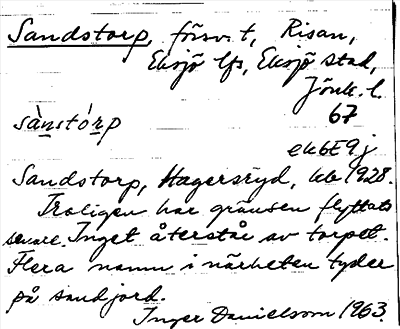 Sandstorp, försv. t, Risan,
Eksjö lfs, Eksjö stad,
Jönk. l.
67
sànstórp
ek 6E 9j
Sandstorp, Hagersryd, 1928.
Troligen har gränsen flyttats
senare. Inget återstår av torpet.
Flera namn i närheten tyder
på sandjord.
Inger Danielsson 1963.